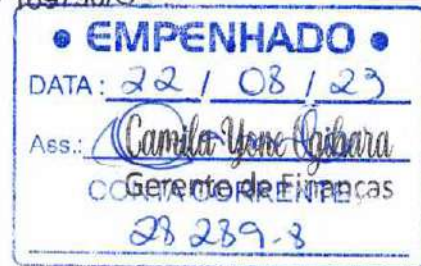 • EMPENHADO •
DATA: 22 / 08 / 23
Ass.: Camila Yone Ogibara
Gerente de Finanças
CONTA CORRENTE
28 289-8